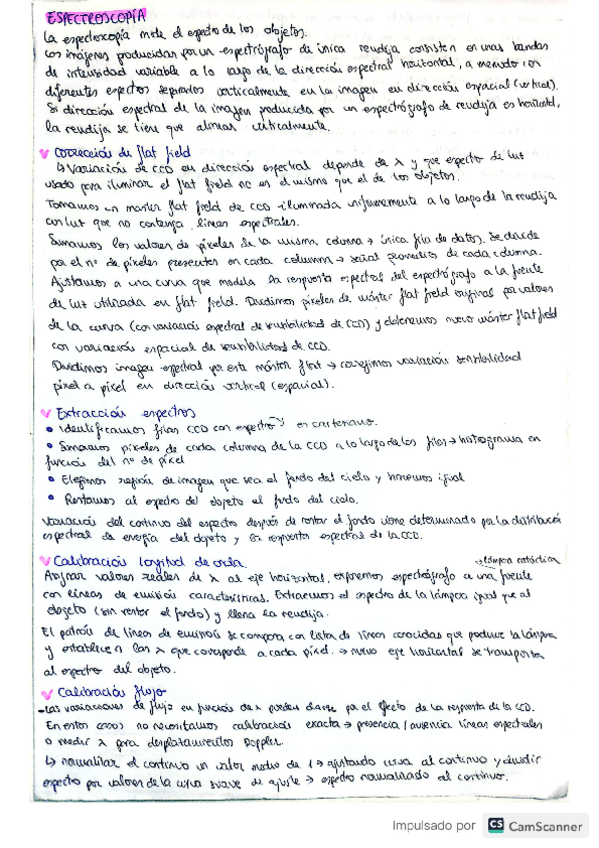 ESPECTROSCOPÍA
La espectroscopía mide el espectro de los objetos.
Las imágenes producidas por un espectrógrafo de única rendija consisten en unas bandas
de intensidad variable a lo largo de la dirección espectral horizontal, a menudo con
diferentes espectros separados verticalmente en la imagen en dirección espacial (vertical).
Si dirección espectral de la imagen producida por un espectrógrafo de rendija es horizontal,
la rendija se tiene que alinear verticalmente.
Corrección de flat field
↳ Variación de CCD en dirección espectral depende de λ y que espectro de luz
usado para iluminar el flat field no es el mismo que el de los objetos.
Tomamos un master flat field de CCD iluminada uniformemente a lo largo de la rendija
con luz que no contenga líneas espectrales.
Sumamos los valores de píxeles de la misma columna → única fila de datos. Se divide
por el nº de píxeles presentes en cada columna → señal promedio de cada columna.
Ajustamos a una curva que modela la respuesta espectral del espectrógrafo a la fuente
de luz utilizada en flat field. Dividimos píxeles de máster flat field original por valores
de la curva (con variación espectral de sensibilidad de CCD) y obtenemos nuevo máster flat field
con variación espacial de sensibilidad de CCD.
Dividimos imagen espectral por este máster flat → corregimos variación sensibilidad
píxel a píxel en dirección vertical (espacial).
Extracción espectros
• Identificamos filas CCD con espectro y es cartesiano.
• Sumamos píxeles de cada columna de la CCD a lo largo de las filas → histograma en
función del nº de píxel
• Elegimos región de imagen que sea el fondo del cielo y hacemos igual
• Restamos al espectro del objeto el fondo del cielo.
Variación del continuo del espectro después de restar el fondo viene determinado por la distribución
espectral de energía del objeto y la respuesta espectral de la CCD.
Calibración longitud de onda.
→ lámpara
Asignar valores reales de λ al eje horizontal, exponemos espectrógrafo a una fuente
con líneas de emisión características. Extraemos el espectro de la lámpara igual que al
objeto (sin restar el fondo) y llena la rendija.
El patrón de líneas de emisión se compara con lista de líneas conocidas que produce la lámpara
y establecen las λ que corresponde a cada píxel. → nuevo eje horizontal se transporta
al espectro del objeto.
Calibración flujo
- Las variaciones de flujo en función de λ pueden darse por el efecto de la respuesta de la CCD.
En estos casos no necesitamos calibración exacta → presencia / ausencia líneas espectrales
o medir λ para desplazamientos Doppler.
↳ normalizar el continuo un valor medio de 1 → ajustando curva al continuo y dividir
espectro por valores de la curva suave de ajuste → espectro normalizado al continuo.
Impulsado por CS CamScanner